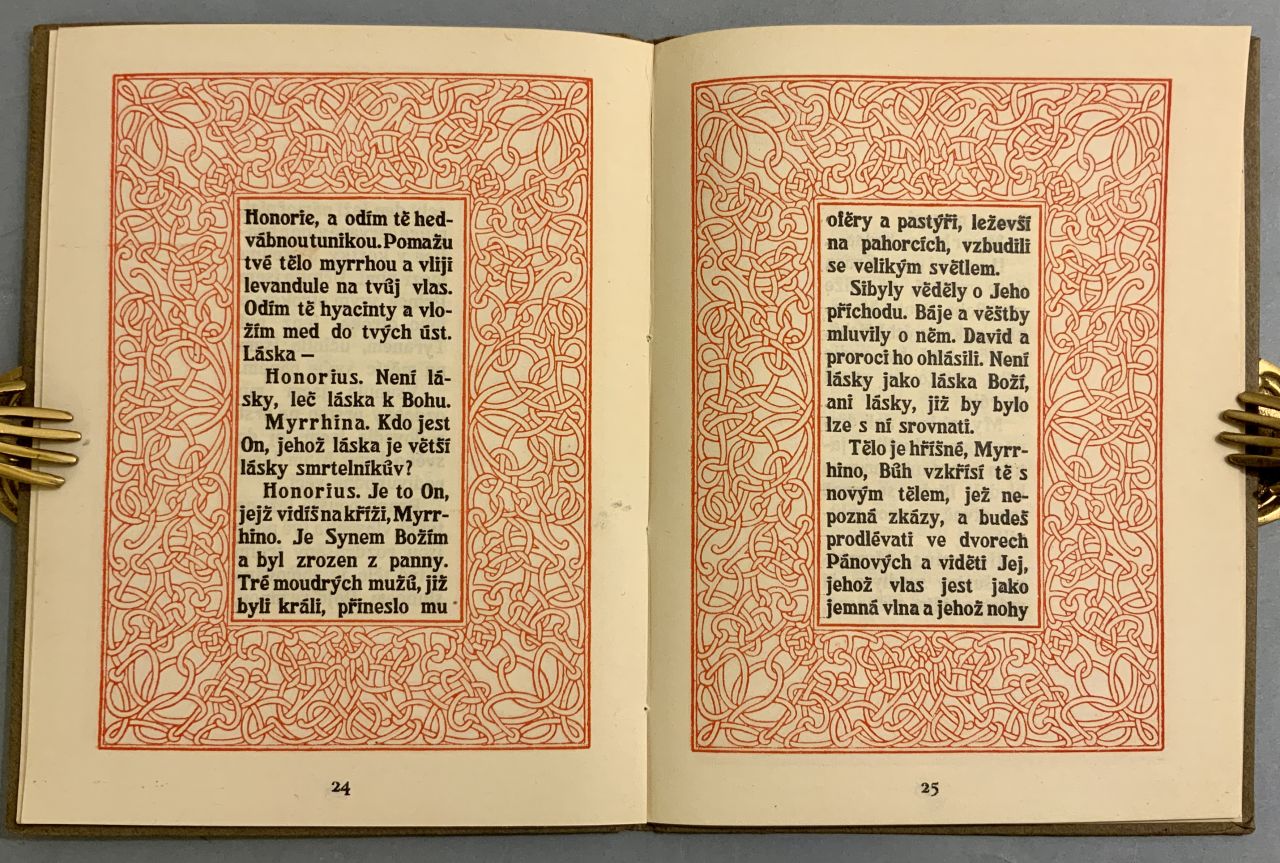 Honorie, a odím tě hed-
vábnou tunikou. Pomažu
tvé tělo myrrhou a vliji
levandule na tvůj vlas.
Odím tě hyacinty a vlo-
žím med do tvých úst.
Láska —
Honorius. Není lá-
sky, leč láska k Bohu.
Myrrhina. Kdo jest
On, jehož láska je větší
lásky smrtelníkův?
Honorius. Je to On,
jejž vidíš na kříži, Myrr-
hino. Je Synem Božím
a byl zrozen z panny.
Tré moudrých mužů, již
byli králi, přineslo mu
24
ofěry a pastýři, leževší
na pahorcích, vzbudili
se velikým světlem.
Sibyly věděly o Jeho
příchodu. Báje a věštby
mluvily o něm. David a
proroci ho ohlásili. Není
lásky jako láska Boží,
ani lásky, již by bylo
lze s ní srovnati.
Tělo je hříšné, Myrr-
hino, Bůh vzkřísí tě s
novým tělem, jež ne-
pozná zkázy, a budeš
prodlévati ve dvorech
Pánových a viděti Jej,
jehož vlas jest jako
jemná vlna a jehož nohy
25